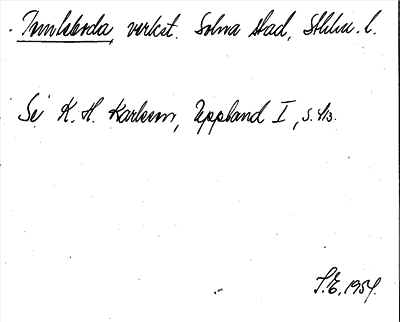 Tomteboda, verkst. Solna stad, Sthlm. l.
Se K. H. Karlsson, Uppland I, s. 413.
S.E. 1954.